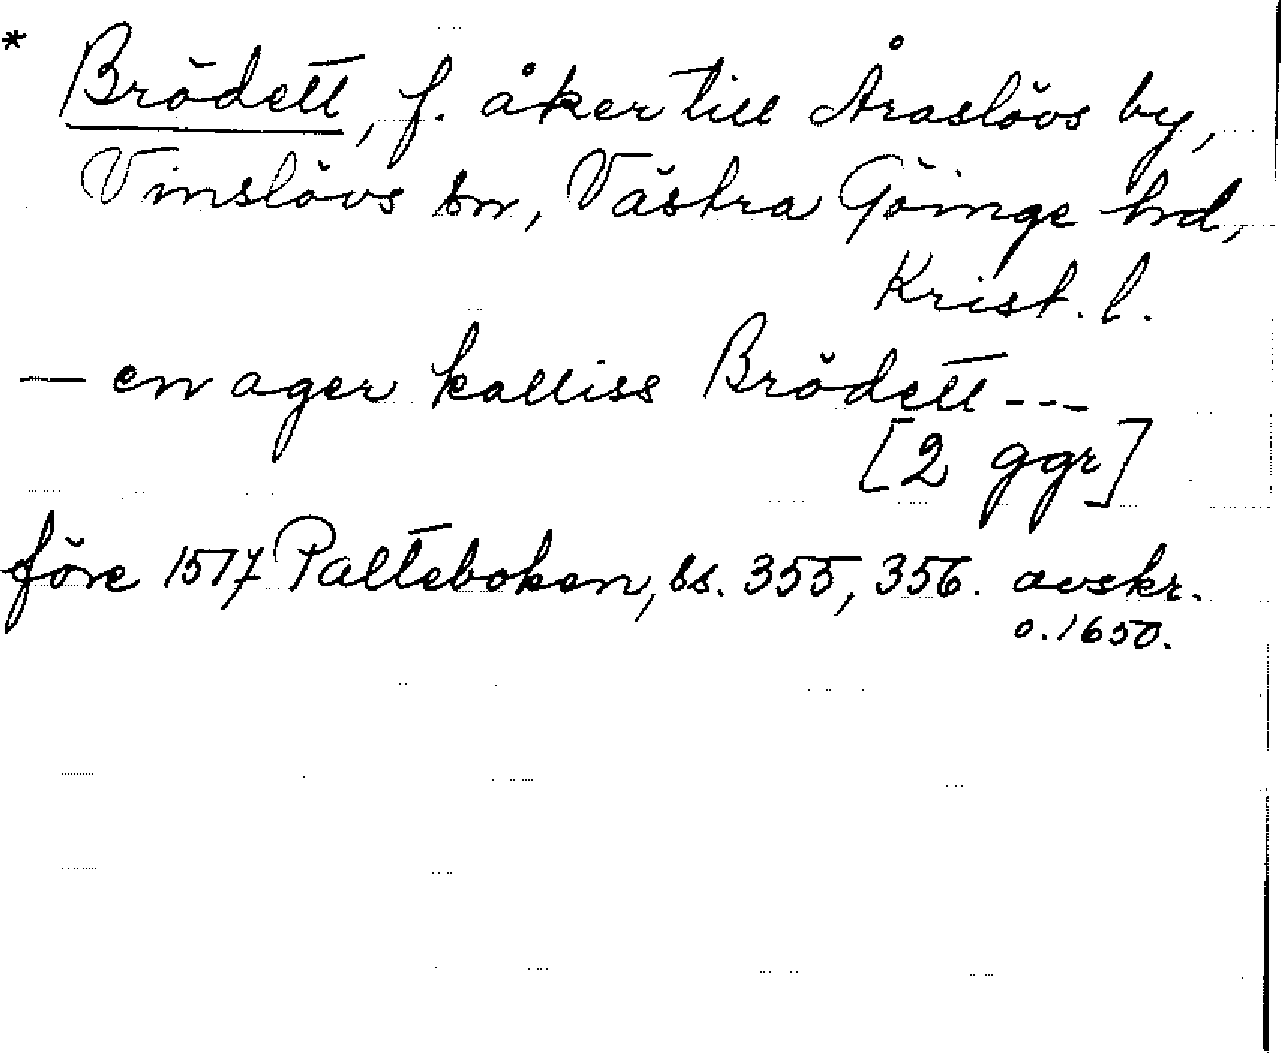 * Brödett, f. åker till Åraslövs by,
Vinslövs sn, Västra Göinge hrd,
Krist. l.
— en ager kalliss Brödett ---
[2 ggr]
före 1517 Palteboken, ss. 355, 356. avskr.
o. 1650.